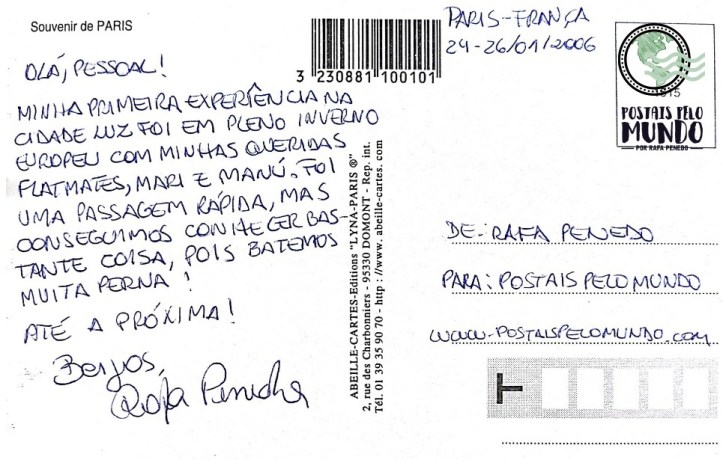 Souvenir de PARIS
OLÁ, PESSOAL!
MINHA PRIMEIRA EXPERIÊNCIA NA
CIDADE LUZ FOI EM PLENO INVERNO
EUROPEU COM MINHAS QUERIDAS
FLATMATES, MARI E MANÚ. FOI
UMA PASSAGEM RÁPIDA, MAS
CONSEGUIMOS CONHECER BAS-
TANTE COISA, POIS BATEMOS
MUITA PERNA!
ATÉ A PRÓXIMA!
Beijos,
Rafa Penedo
3 230881 100101
ABEILLE-CARTES-Editions "LYNA-PARIS ®"
2, rue des Charbonniers - 95330 DOMONT - Rep. int.
Tél. 01 39 35 90 70 - http://www.abeille-cartes.com
PARIS-FRANÇA
24-26/01/2006
POSTAIS PELO
MUNDO
POR RAFA PENEDO
DE: RAFA PENEDO
PARA: POSTAIS PELO MUNDO
WWW.POSTAISPELOMUNDO.COM